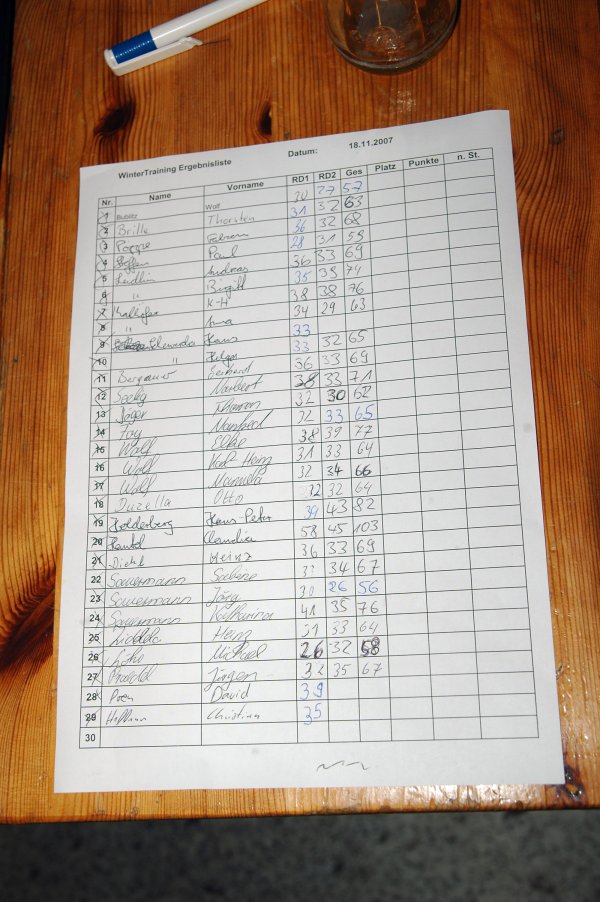 WinterTraining Ergebnisliste Datum: 18.11.2007
Nr. Name Vorname RD1 RD2 Ges Platz Punkte n. St.
1 Bublitz Wolf 30 27 57
2 Brille Thorsten 31 32 63
3 Poppe Fabian 36 32 68
4 Steffen Paul 28 31 59
5 Andreas 36 33 69
6 " Birgitt 35 39 74
7 K-H 38 38 76
8 " Anna 34 29 63
9 Klaus 33
10 " Helga 33 32 65
11 Bergauer Gerhard 36 33 69
12 Seelig Norbert 38 33 71
13 Jäger 32 30 62
14 Foy Manfred 32 33 65
15 Wolf Elke 38 39 77
16 Wolf Karl Heinz 31 33 64
17 Wolf Manuela 32 34 66
18 Duzella Otto 32 32 64
19 Holderberg Hans-Peter 39 43 82
20 Claudia 58 45 103
21 Diehl Heinz 36 33 69
22 Sauermann Sabine 33 34 67
23 Sauermann Jörg 30 26 56
24 Sauermann Katharina 41 35 76
25 Heinz 31 33 64
26 Michael 26 32 58
27 Jürgen 32 35 67
28 David 39
29 Hoffmann Christian 35
30